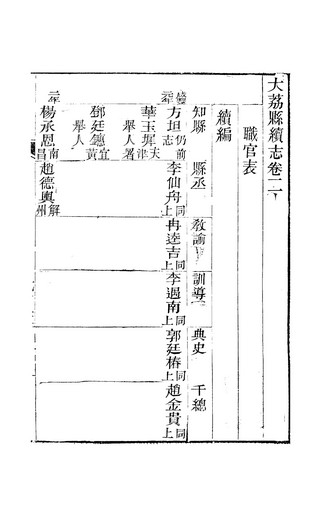 大荔縣續志卷二
職官表
續編
知縣 縣丞 教諭 訓導 典史 千總
元年 方坦仍前志 李仙舟同上 冉逵吉同上 李遇南同上 郭廷椿同上 趙金貴同上
華玉墀天津舉人署
鄧廷鏸宜黃舉人
二年 楊丞恩南昌 趙德輿解州